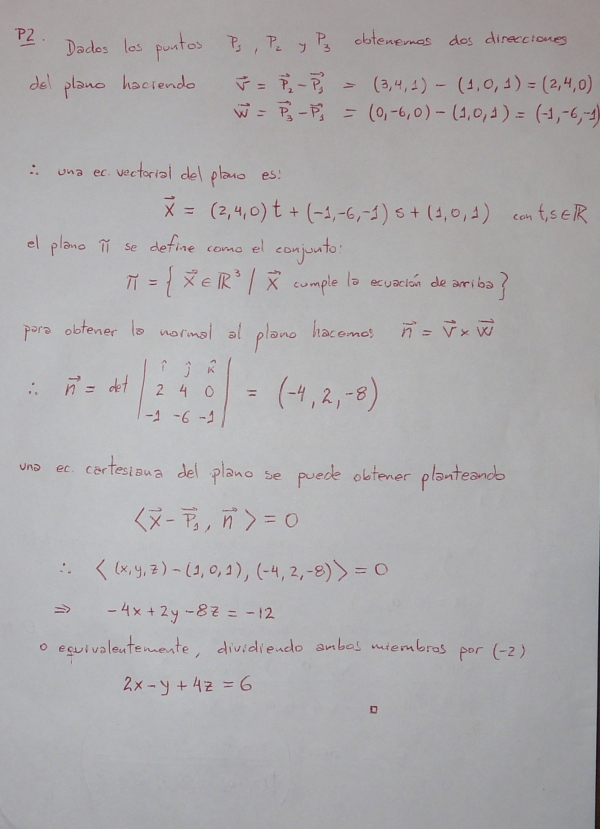 P2. Dados los puntos P₁, P₂ y P₃ obtenemos dos direcciones
del plano haciendo v⃗ = P⃗₂ - P⃗₁ = (3,4,1) - (1,0,1) = (2,4,0)
w⃗ = P⃗₃ - P⃗₁ = (0,-6,0) - (1,0,1) = (-1,-6,-1)
∴ una ec. vectorial del plano es:
X⃗ = (2,4,0) t + (-1,-6,-1) s + (1,0,1) con t,s ∈ ℝ
el plano π se define como el conjunto:
π = { X⃗ ∈ ℝ³ / X⃗ cumple la ecuación de arriba }
para obtener la normal al plano hacemos n⃗ = v⃗ × w⃗
∴ n⃗ = det | î ĵ k̂ |
| 2 4 0 | = (-4, 2, -8)
| -1 -6 -1 |
una ec. cartesiana del plano se puede obtener planteando
⟨ X⃗ - P⃗₁, n⃗ ⟩ = 0
∴ ⟨ (x,y,z) - (1,0,1), (-4,2,-8) ⟩ = 0
⇒ -4x + 2y - 8z = -12
o equivalentemente, dividiendo ambos miembros por (-2)
2x - y + 4z = 6
□